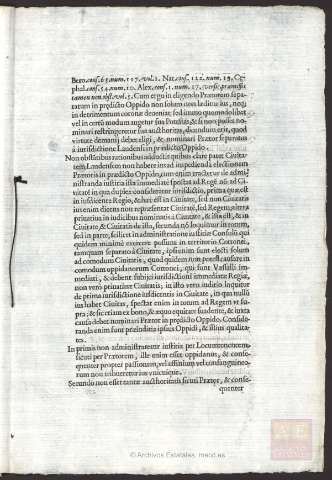 Bero. cons. 63. num. 117. vol. 1. Nat. cons. 122. num. 19. Ce-
phal. cons. 54. num. 10. Alex. cons. 1. num. 17. vers. præmissis
tamen non obst. vol. 5. Cum ergo in eligendo Prætorem sepa-
ratum in prædicto Oppido non solum non læditur ius, nec
in detrimentum coronæ deueniat, sed immo quomodolibet
vel in certo modum augetur sua Potestas, & si non posset no-
minari restringeretur sua aucthoritas, dicendum erit, quod
virtute demanij debet eligi, & nominari Prætor separatus
à iurisdictione Laudensi in prædicto Oppido.
Non obstãtibus rationibus adductis quibus claré patet Ciuita-
tem Laudensem non habere ius ad impediendã electionem
Prætoris in prædicto Oppido, cum enim tractetur de admi-
nistranda iustitia illa immediatè spectat ad Regẽ nõ ad Ci-
uitatẽ in qua duplex consideretur iurisdictio, prima quæ est
in iusdicente Regio, & hæc est in Ciuitate, sed non Ciuitatis
ius enim dicens non repræsentat Ciuitatẽ, sed Regem, altera
priuatiua in iudicibus nominatis à Ciuitate, & ista est, & in
Ciuitate & Ciuitatis de ista, secunda nõ loquitur in totum,
sed in parte, scilicet in administratione iustitiæ Consulũ qui
quidem minimè exercere possunt in territorio Cottonei,
tamquam separato à Ciuitate, ipsi enim sunt electi solum
ad comodum Ciuitatis, quod quidem nõ potest causare in
comodum oppidanorum Cottonei, qui sunt Vassalli imme-
diati, & debent subijci iurisdictioni immediatæ Regiæ,
non verò priuatiuæ Ciuitatis, in isto verò iuditio loquitur
de prima iurisdictione iusdicentis in Ciuitate, in qua nullũ
ius habet Ciuitas, spectat enim in totum ad Regem vt su-
pra; & sic etiam ex bono, & æquo equitate suadente, & iuxta
causas debet nominari Prætor in prædicto Oppido. Conside-
randa enim sunt præiuditia ipsius Oppidi, & illius qualita-
tes.
In primis non administraretur iustitia per Locumtenentem,
sicuti per Prætorem, ille enim esset oppidanus, & conse-
quenter propter passionum, vel affinium vel consanguineo-
rum non tribueretur ius vnicuique.
Secundo non esset tantæ aucthoritatis sicuti Prætor, & conse-
quenter
© Archivos Estatales, mecd.es